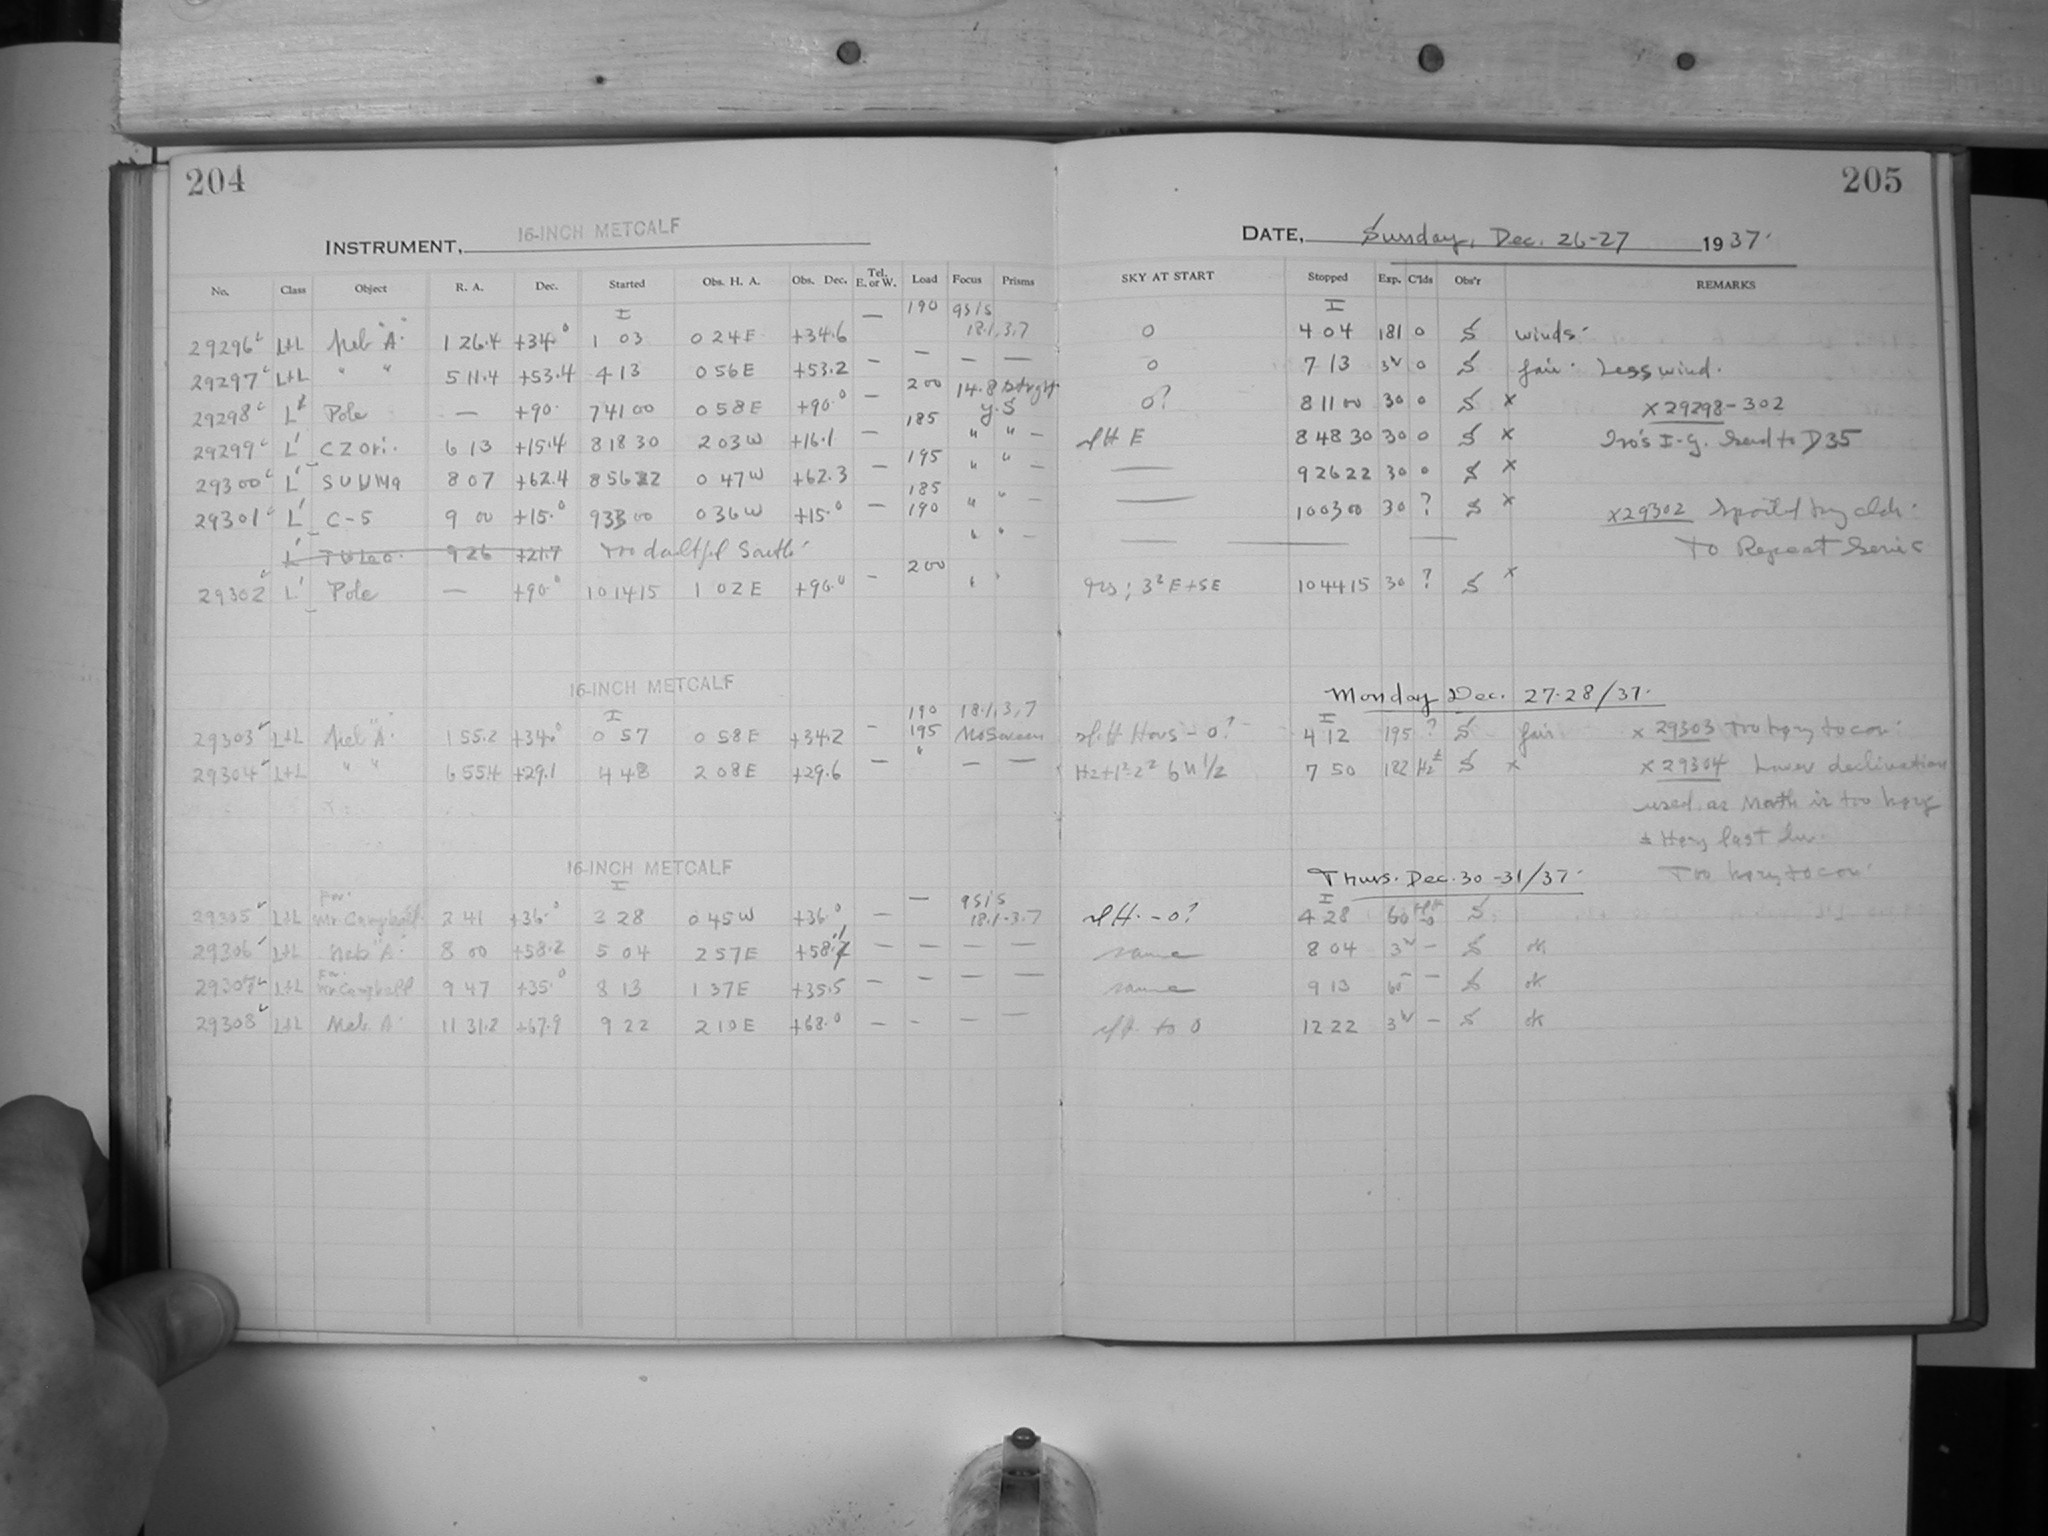 204
205
INSTRUMENT, 16-INCH METCALF
DATE, Sunday, Dec. 26-27 1937.
No. Class Object R. A. Dec. Started Obs. H. A. Obs. Dec. Tel. E. or W. Load Focus Prisms SKY AT START Stopped Exp. C'lds Obs'r REMARKS
29296 L+L Neb "A" 1 26.4 +34.0 1 03 0 24 E +34.6 — 190 18.1, 3, 7 0 4 04 181 0 S winds.
29297 L+L " " 5 11.4 +53.4 4 13 0 56 E +53.2 — — — — 0 7 13 0 S fair. Less wind.
29298 L Pole — +90. 7 41 00 0 58 E +90.0 — 200 14.8 0? 8 11 00 30 0 S x x 29298-302
29299 L' CZ Ori. 6 13 +15.4 8 18 30 2 03 W +16.1 — 185 " " — E 8 48 30 30 0 S x Send to D35
29300 L' SU UMa 8 07 +62.4 8 56 22 0 47 W +62.3 — 195 " " — — 9 26 22 30 0 S x
29301 L' C-5 9 00 +15.0 9 33 00 0 36 W +15.0 — 185 190 " " — — 10 03 00 30 ? S x x 29302 Spoiled by clds.
L' TU Leo. 9 26 +21.7 Too doubtful South. " " — — To Repeat Series
29302 L' Pole — +90.0 10 14 15 1 02 E +90.0 — 200 E + SE 10 44 15 30 ? S x
16-INCH METCALF
Monday Dec. 27-28/37.
29303 L+L Neb "A" 1 55.2 +34.0 0 57 0 58 E +34.2 — 190 195 18.1, 3, 7 No Screen 4 12 195 ? S fair x 29303 Too hazy to con.
29304 L+L " " 6 55.4 +29.1 4 48 2 08 E +29.6 — " — — 7 50 182 Hz S x x 29304 Lower declination
used as North is too hazy
Too hazy to con.
16-INCH METCALF
Thurs. Dec. 30-31/37.
29305 L+L For Mr Campbell. 2 41 +36.0 3 28 0 45 W +36.0 — — 18.1-3.7 4 28 60 S
29306 L+L Neb "A" 8 00 +58.2 5 04 2 57 E — — — — same 8 04 — S ok
29307 L+L For Mr Campbell 9 47 +35.0 8 13 1 37 E +35.5 — — — — same 9 13 60 — S ok
29308 L+L Neb A. 11 31.2 +67.9 9 22 2 10 E +68.0 — - — — to 0 12 22 — S ok